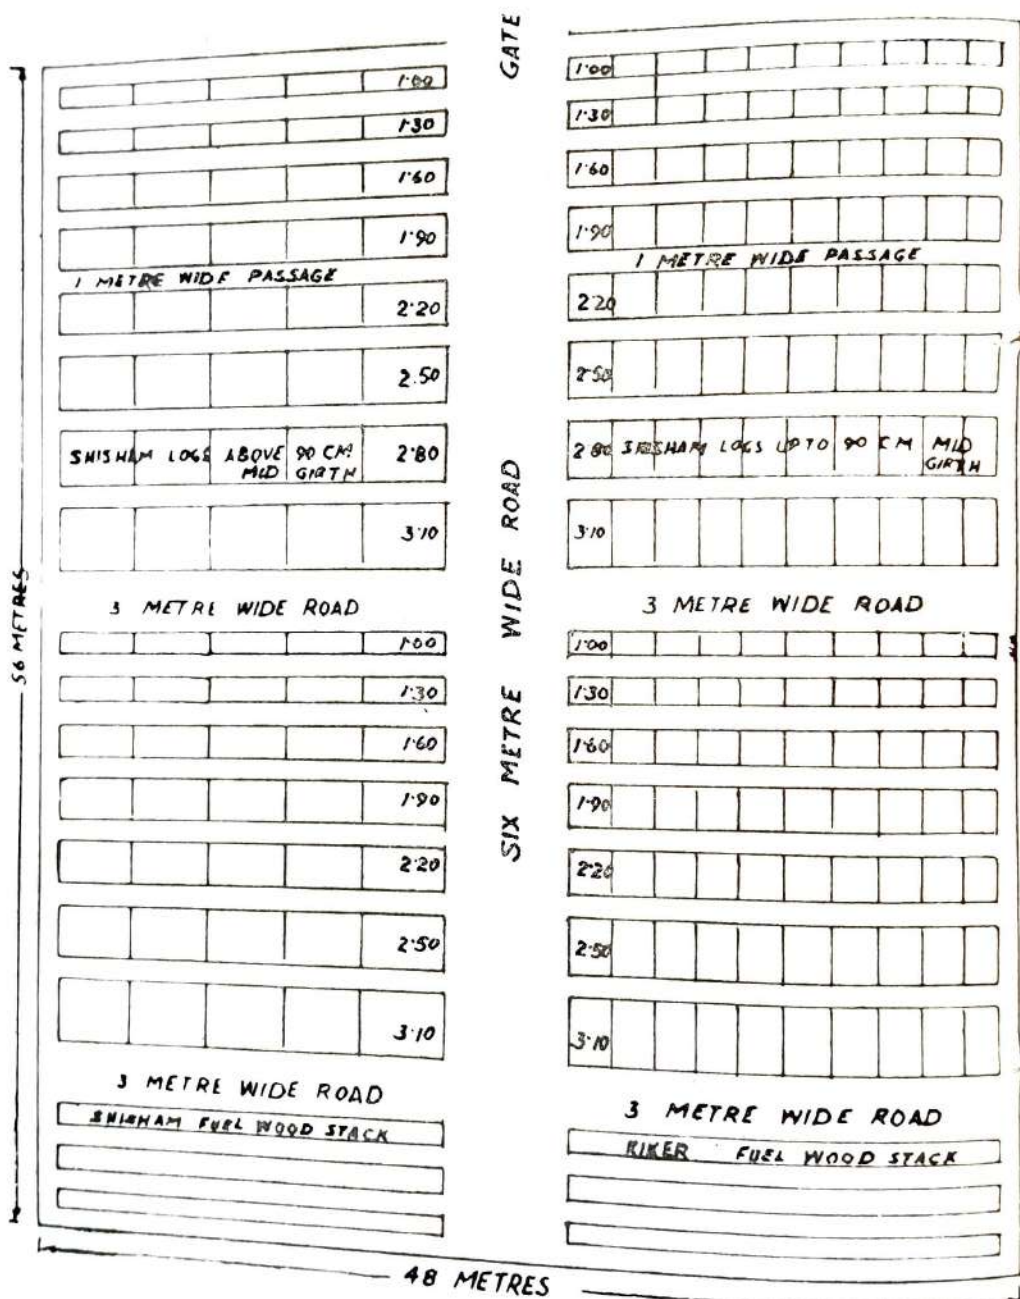 GATE
1·00
1·30
1·60
1·90
1 METRE WIDE PASSAGE
2·20
2·50
SHISHAM LOGS ABOVE 90 CM
MID GIRTH
2·80
3·10
3 METRE WIDE ROAD
1·00
1·30
1·60
1·90
2·20
2·50
3·10
3 METRE WIDE ROAD
SHISHAM FUEL WOOD STACK
56 METRES
SIX METRE WIDE ROAD
1·00
1·30
1·60
1·90
1 METRE WIDE PASSAGE
2·20
2·50
2·80 SHISHAM LOGS UPTO 90 CM MID
GIRTH
3·10
3 METRE WIDE ROAD
1·00
1·30
1·60
1·90
2·20
2·50
3·10
3 METRE WIDE ROAD
KIKER FUEL WOOD STACK
48 METRES